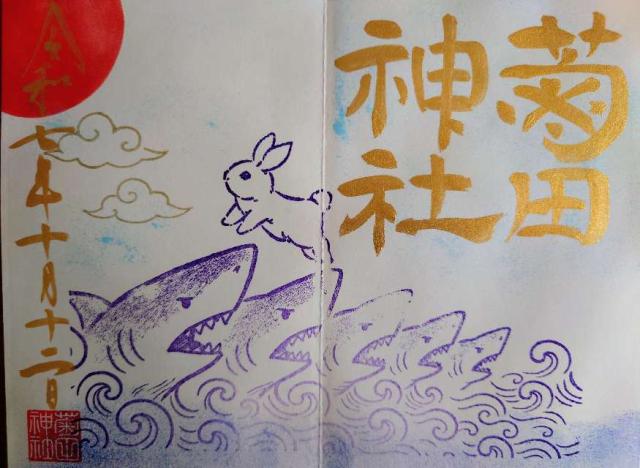 菊田
神社
令和
七年十月十二日
菊田
神社